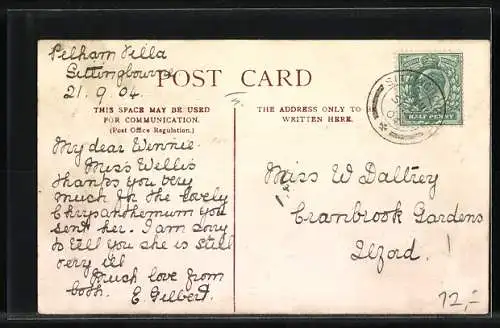 Pelham Villa
Sittingbourne
21.9.04.
POST CARD
THIS SPACE MAY BE USED
FOR COMMUNICATION.
(Post Office Regulation.)
THE ADDRESS ONLY TO BE
WRITTEN HERE.
HALF PENNY
My dear Winnie.
Miss Wellis
thanks you very
much for the lovely
Chrysanthemum you
sent her. I am sorry
to tell you she is still
very ill
Much love from
both. E Gilbert.
Miss W Daltrey
Cranbrook Gardens
Ilford.
12,-